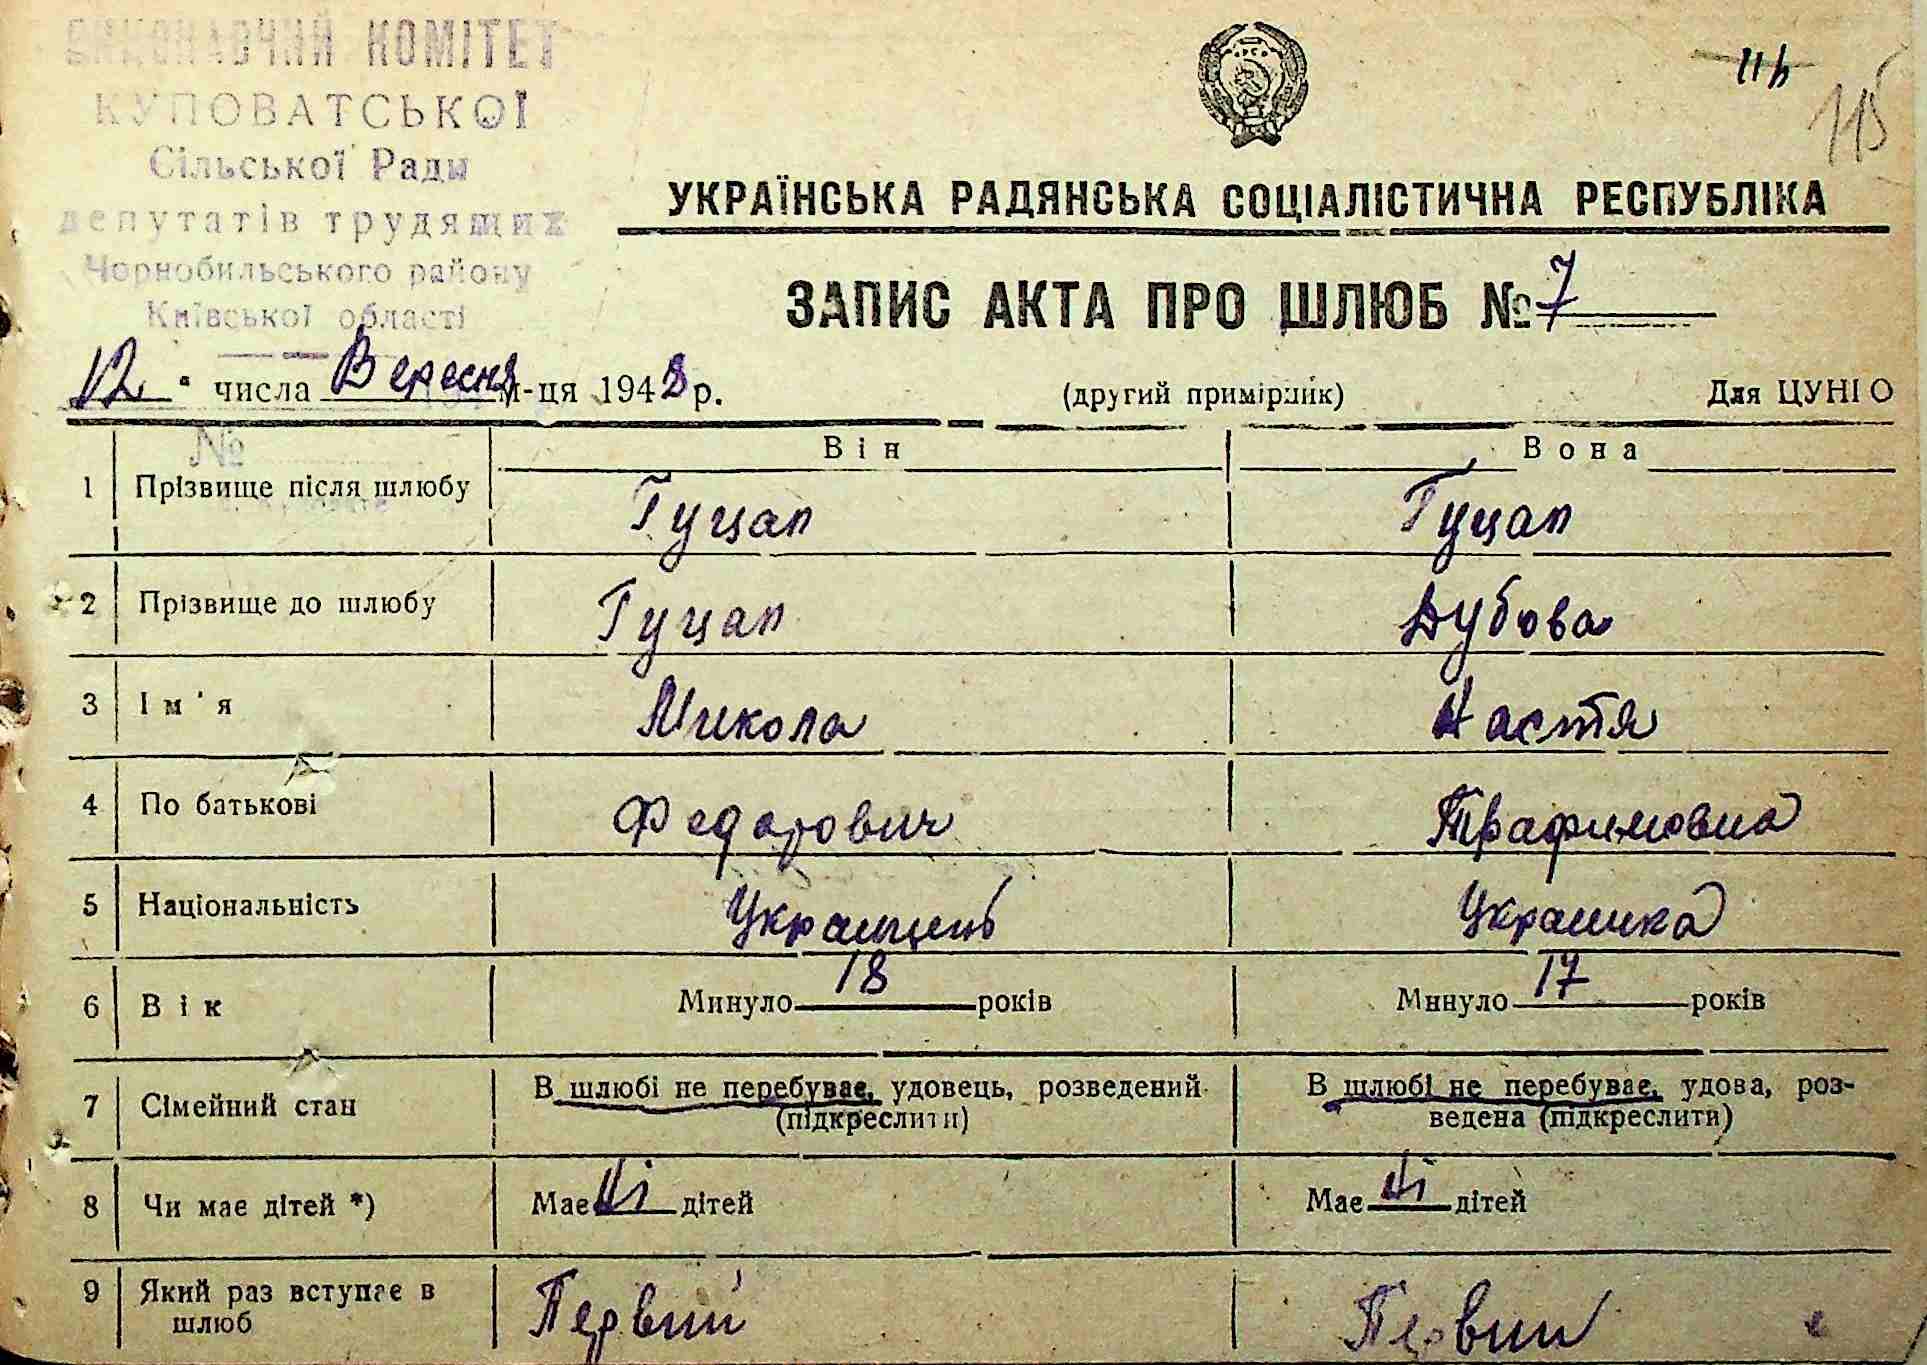 ВИКОНАВЧИЙ КОМІТЕТ
КУПОВАТСЬКОЇ
Сільської Ради
депутатів трудящих
Чорнобильського району
Київської області
№
114
115
УКРАЇНСЬКА РАДЯНСЬКА СОЦІАЛІСТИЧНА РЕСПУБЛІКА
ЗАПИС АКТА ПРО ШЛЮБ № 7
12 " числа Вересня м-ця 1948 р. (другий примірник) Для ЦУНГО
Він Вона
1 Прізвище після шлюбу Гуцал Гуцал
2 Прізвище до шлюбу Гуцал Дубова
3 Ім'я Микола Настя
4 По батькові Федорович Трафимовна
5 Національність Украинець Украинка
6 Вік Минуло 18 років Минуло 17 років
7 Сімейний стан В шлюбі не перебуває, удовець, розведений В шлюбі не перебуває, удова, роз-
(підкреслити) ведена (підкреслити)
8 Чи має дітей *) Має Ні дітей Має Ні дітей
9 Який раз вступає в Первий Первий
шлюб